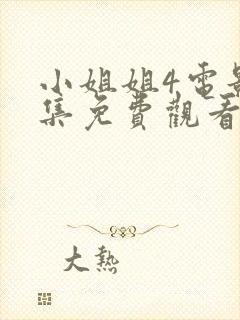 小姐姐4電影
集免費觀看
大熱